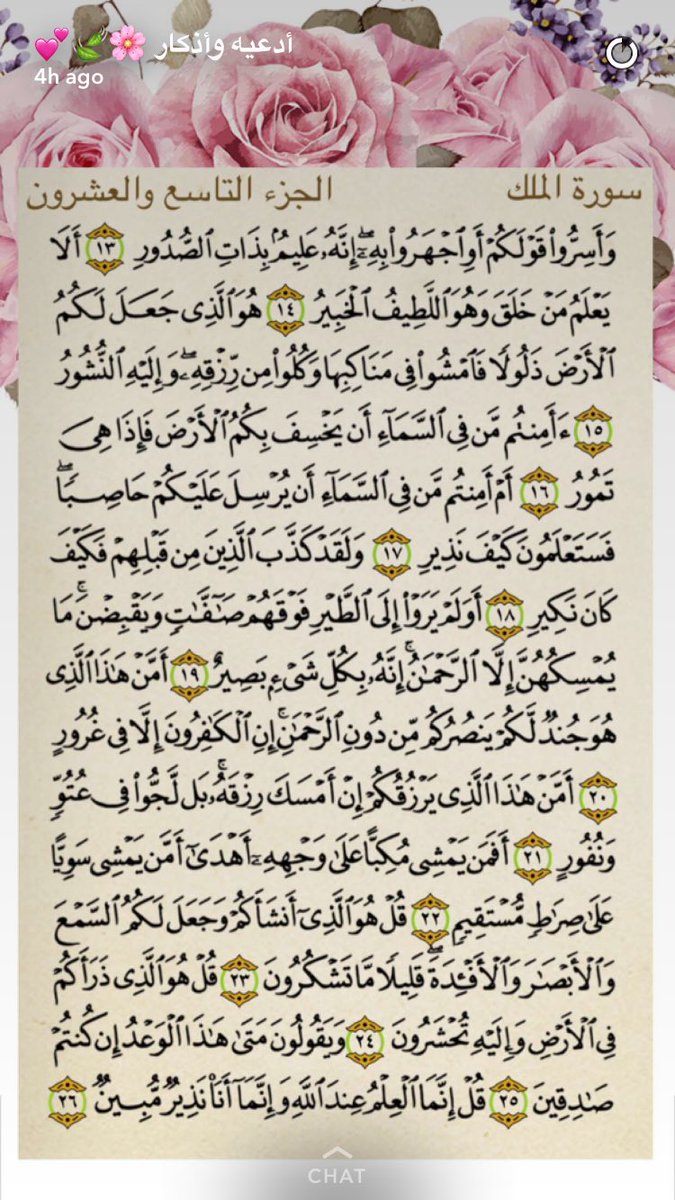 أدعيه وأذكار 🌸🌿💕
4h ago
سورة الملك الجزء التاسع والعشرون
وَأَسِرُّوا۟ قَوْلَكُمْ أَوِ ٱجْهَرُوا۟ بِهِۦٓ ۖ إِنَّهُۥ عَلِيمٌۢ بِذَاتِ ٱلصُّدُورِ ١٣ أَلَا
يَعْلَمُ مَنْ خَلَقَ وَهُوَ ٱللَّطِيفُ ٱلْخَبِيرُ ١٤ هُوَ ٱلَّذِى جَعَلَ لَكُمُ
ٱلْأَرْضَ ذَلُولًا فَٱمْشُوا۟ فِى مَنَاكِبِهَا وَكُلُوا۟ مِن رِّزْقِهِۦ ۖ وَإِلَيْهِ ٱلنُّشُورُ
١٥ ءَأَمِنتُم مَّن فِى ٱلسَّمَآءِ أَن يَخْسِفَ بِكُمُ ٱلْأَرْضَ فَإِذَا هِىَ
تَمُورُ ١٦ أَمْ أَمِنتُم مَّن فِى ٱلسَّمَآءِ أَن يُرْسِلَ عَلَيْكُمْ حَاصِبًا ۖ
فَسَتَعْلَمُونَ كَيْفَ نَذِيرِ ١٧ وَلَقَدْ كَذَّبَ ٱلَّذِينَ مِن قَبْلِهِمْ فَكَيْفَ
كَانَ نَكِيرِ ١٨ أَوَلَمْ يَرَوْا۟ إِلَى ٱلطَّيْرِ فَوْقَهُمْ صَٰٓفَّٰتٍ وَيَقْبِضْنَ ۚ مَا
يُمْسِكُهُنَّ إِلَّا ٱلرَّحْمَٰنُ ۚ إِنَّهُۥ بِكُلِّ شَىْءٍۭ بَصِيرٌ ١٩ أَمَّنْ هَٰذَا ٱلَّذِى
هُوَ جُندٌ لَّكُمْ يَنصُرُكُم مِّن دُونِ ٱلرَّحْمَٰنِ ۚ إِنِ ٱلْكَٰفِرُونَ إِلَّا فِى غُرُورٍ
٢٠ أَمَّنْ هَٰذَا ٱلَّذِى يَرْزُقُكُمْ إِنْ أَمْسَكَ رِزْقَهُۥ ۚ بَل لَّجُّوا۟ فِى عُتُوٍّ
وَنُفُورٍ ٢١ أَفَمَن يَمْشِى مُكِبًّا عَلَىٰ وَجْهِهِۦٓ أَهْدَىٰٓ أَمَّن يَمْشِى سَوِيًّا
عَلَىٰ صِرَٰطٍ مُّسْتَقِيمٍ ٢٢ قُلْ هُوَ ٱلَّذِىٓ أَنشَأَكُمْ وَجَعَلَ لَكُمُ ٱلسَّمْعَ
وَٱلْأَبْصَٰرَ وَٱلْأَفْـِٔدَةَ ۖ قَلِيلًا مَّا تَشْكُرُونَ ٢٣ قُلْ هُوَ ٱلَّذِى ذَرَأَكُمْ
فِى ٱلْأَرْضِ وَإِلَيْهِ تُحْشَرُونَ ٢٤ وَيَقُولُونَ مَتَىٰ هَٰذَا ٱلْوَعْدُ إِن كُنتُمْ
صَٰدِقِينَ ٢٥ قُلْ إِنَّمَا ٱلْعِلْمُ عِندَ ٱللَّهِ وَإِنَّمَآ أَنَا۠ نَذِيرٌ مُّبِينٌ ٢٦
CHAT